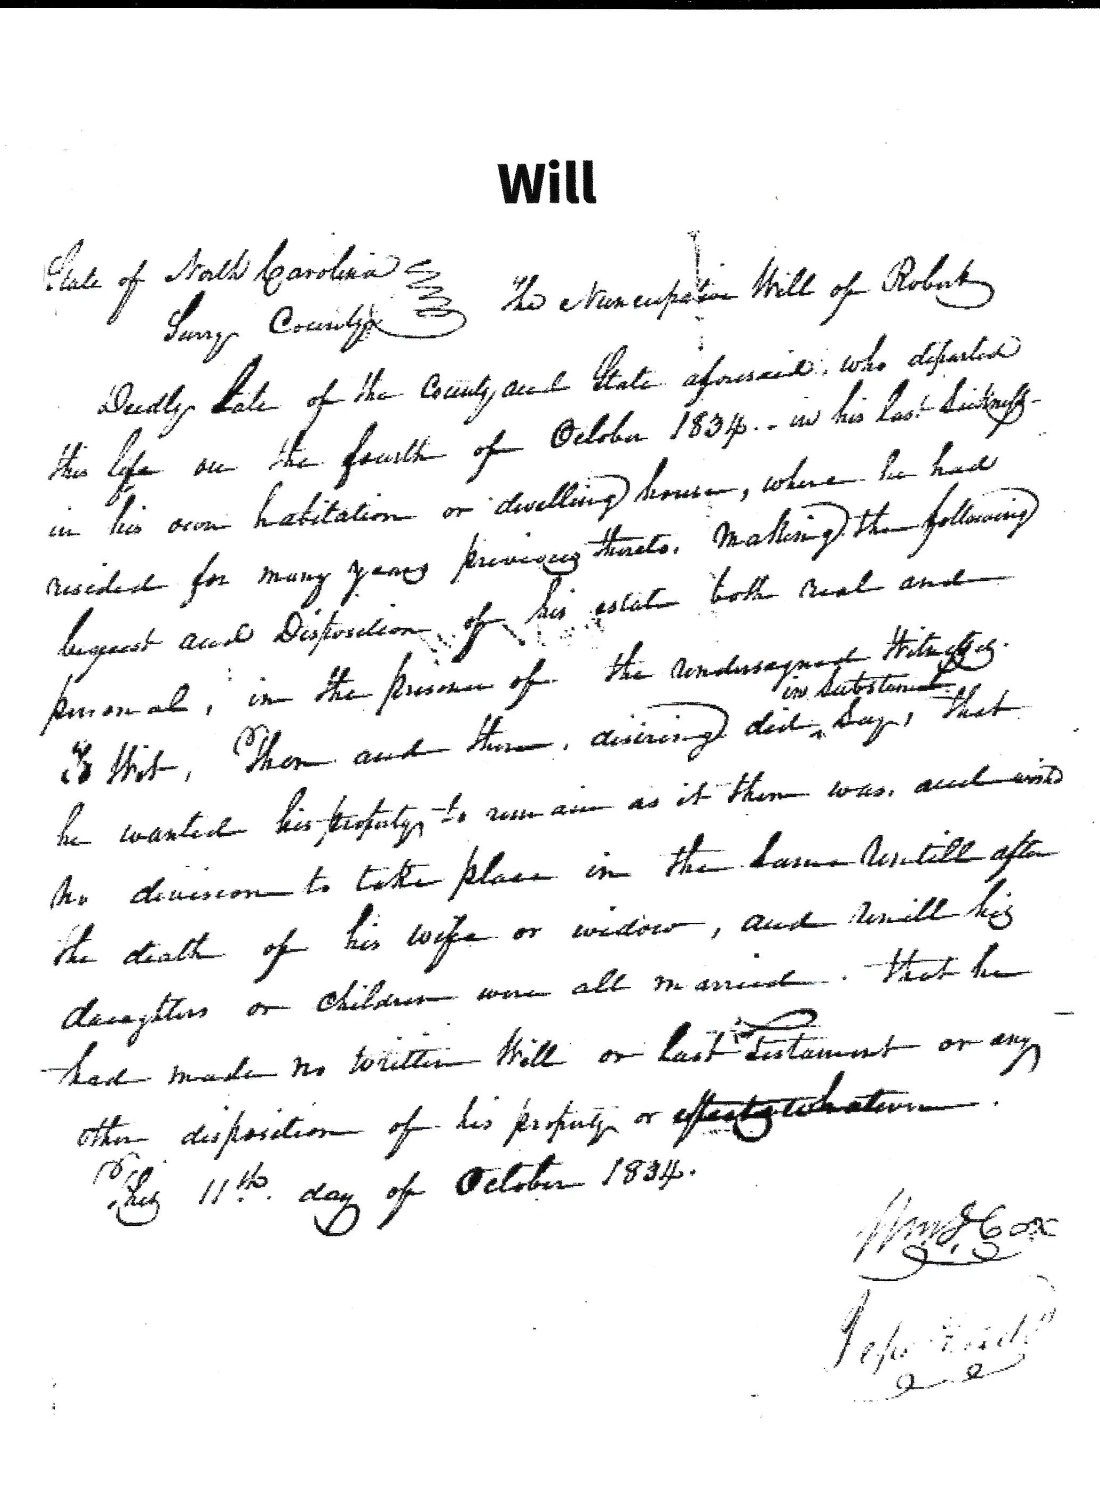 Will
State of North Carolina
Surry County The Nuncupative Will of Robert
Deadly Late of the County and State aforesaid, who departed
this life on the fourth of October 1834. - in his last Sickness -
in his own habitation or dwelling house, where he had
resided for many years previous thereto. Making the following
bequest and Disposition of his estate both real and
personal, in the presence of the undersigned Witnesses.
To Wit, Then and there, desiring did in Substance Say, that
he wanted his property to remain as it then was, and
no division to take place in the same Untill after
the death of his wife or widow, and Untill his
daughters or children were all married. that he
had made no written Will or last testament or any
other disposition of his property or
This 11th. day of October 1834.
Wm J Cox